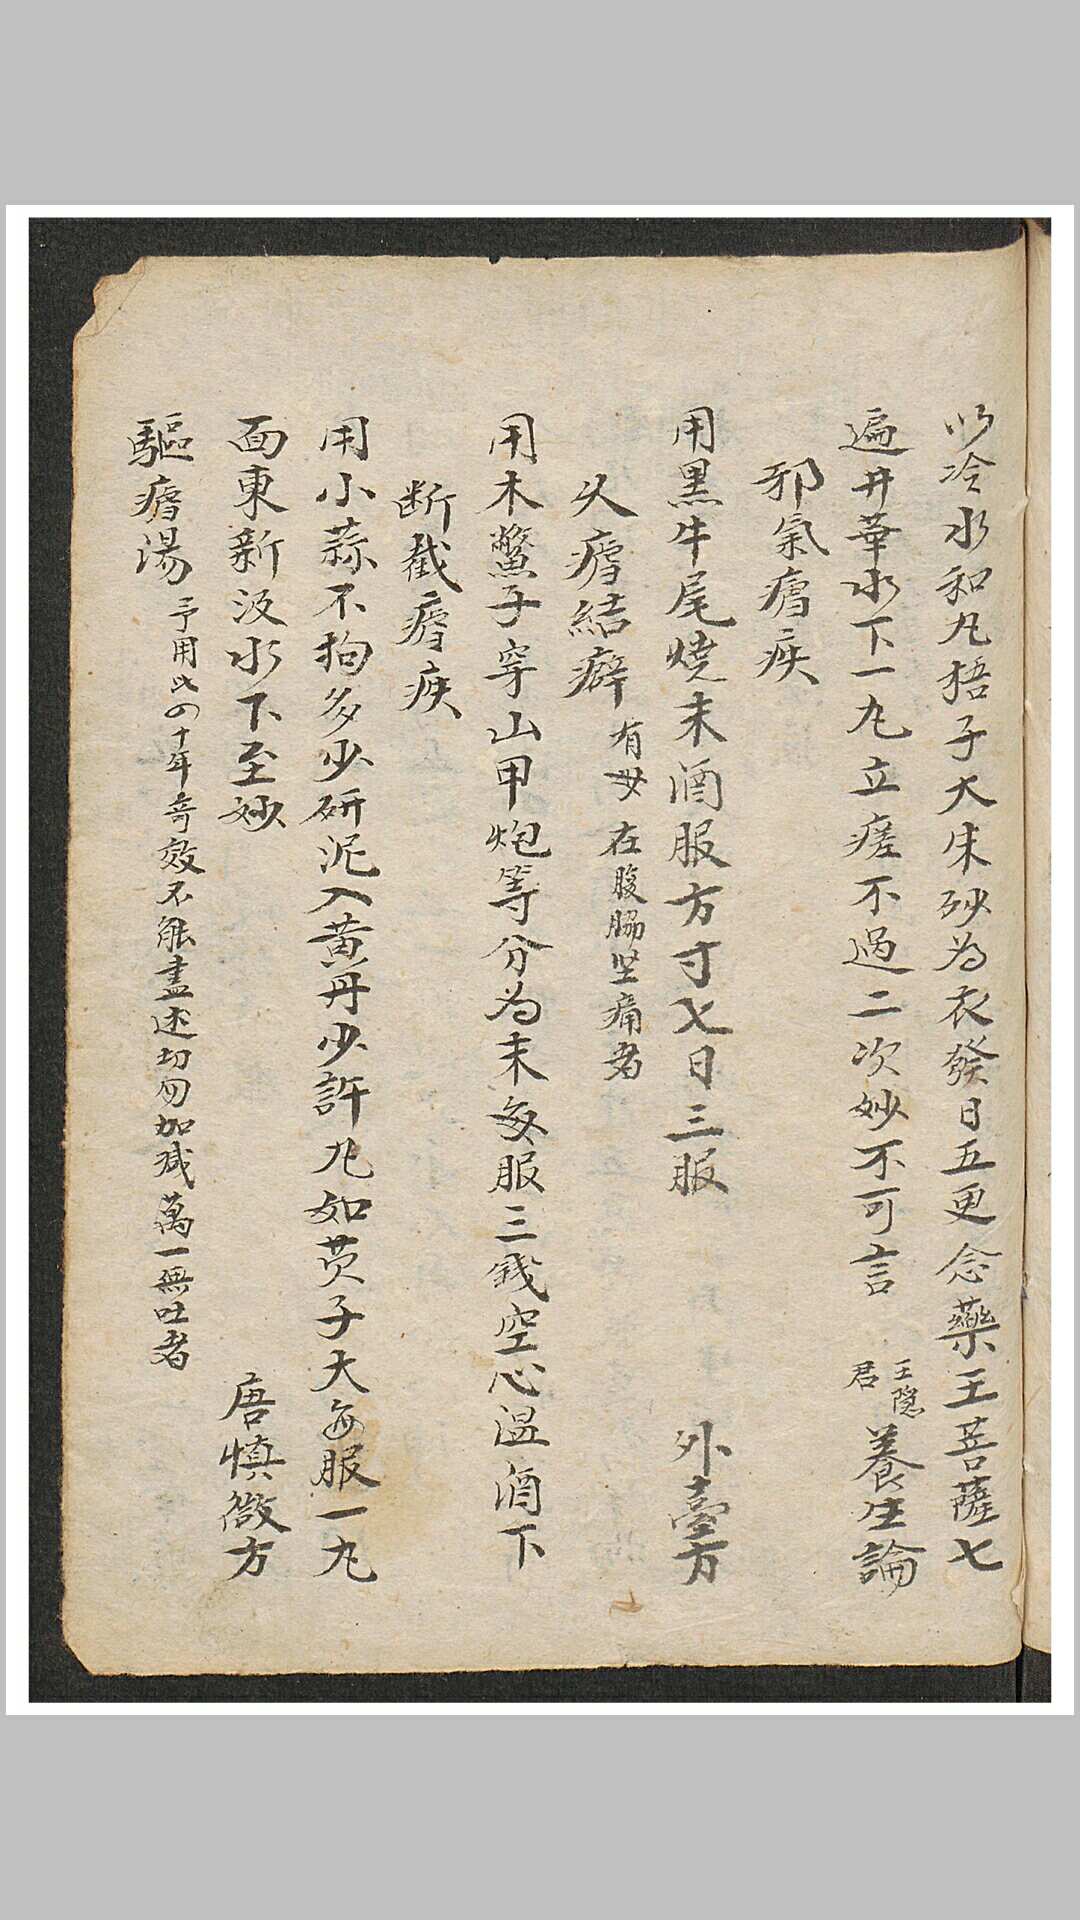 以冷水和丸梧子大朱砂為衣發日五更念藥王菩薩七
遍井華水下一丸立瘥不過二次妙不可言 王隐君 養生論
邪氣瘧疾
用黑牛尾燒末酒服方寸匕日三服 外臺方
久瘧結癖 有母在腹脇坚痛者
用木鱉子穿山甲炮等分為末每服三錢空心温酒下
断截瘧疾
用小蒜不拘多少研泥入黄丹少許丸如芡子大每服一丸
面東新汲水下至妙 唐慎微方
驅瘧湯 予用此四十年竒效不能盡述切勿加减萬一無吐者